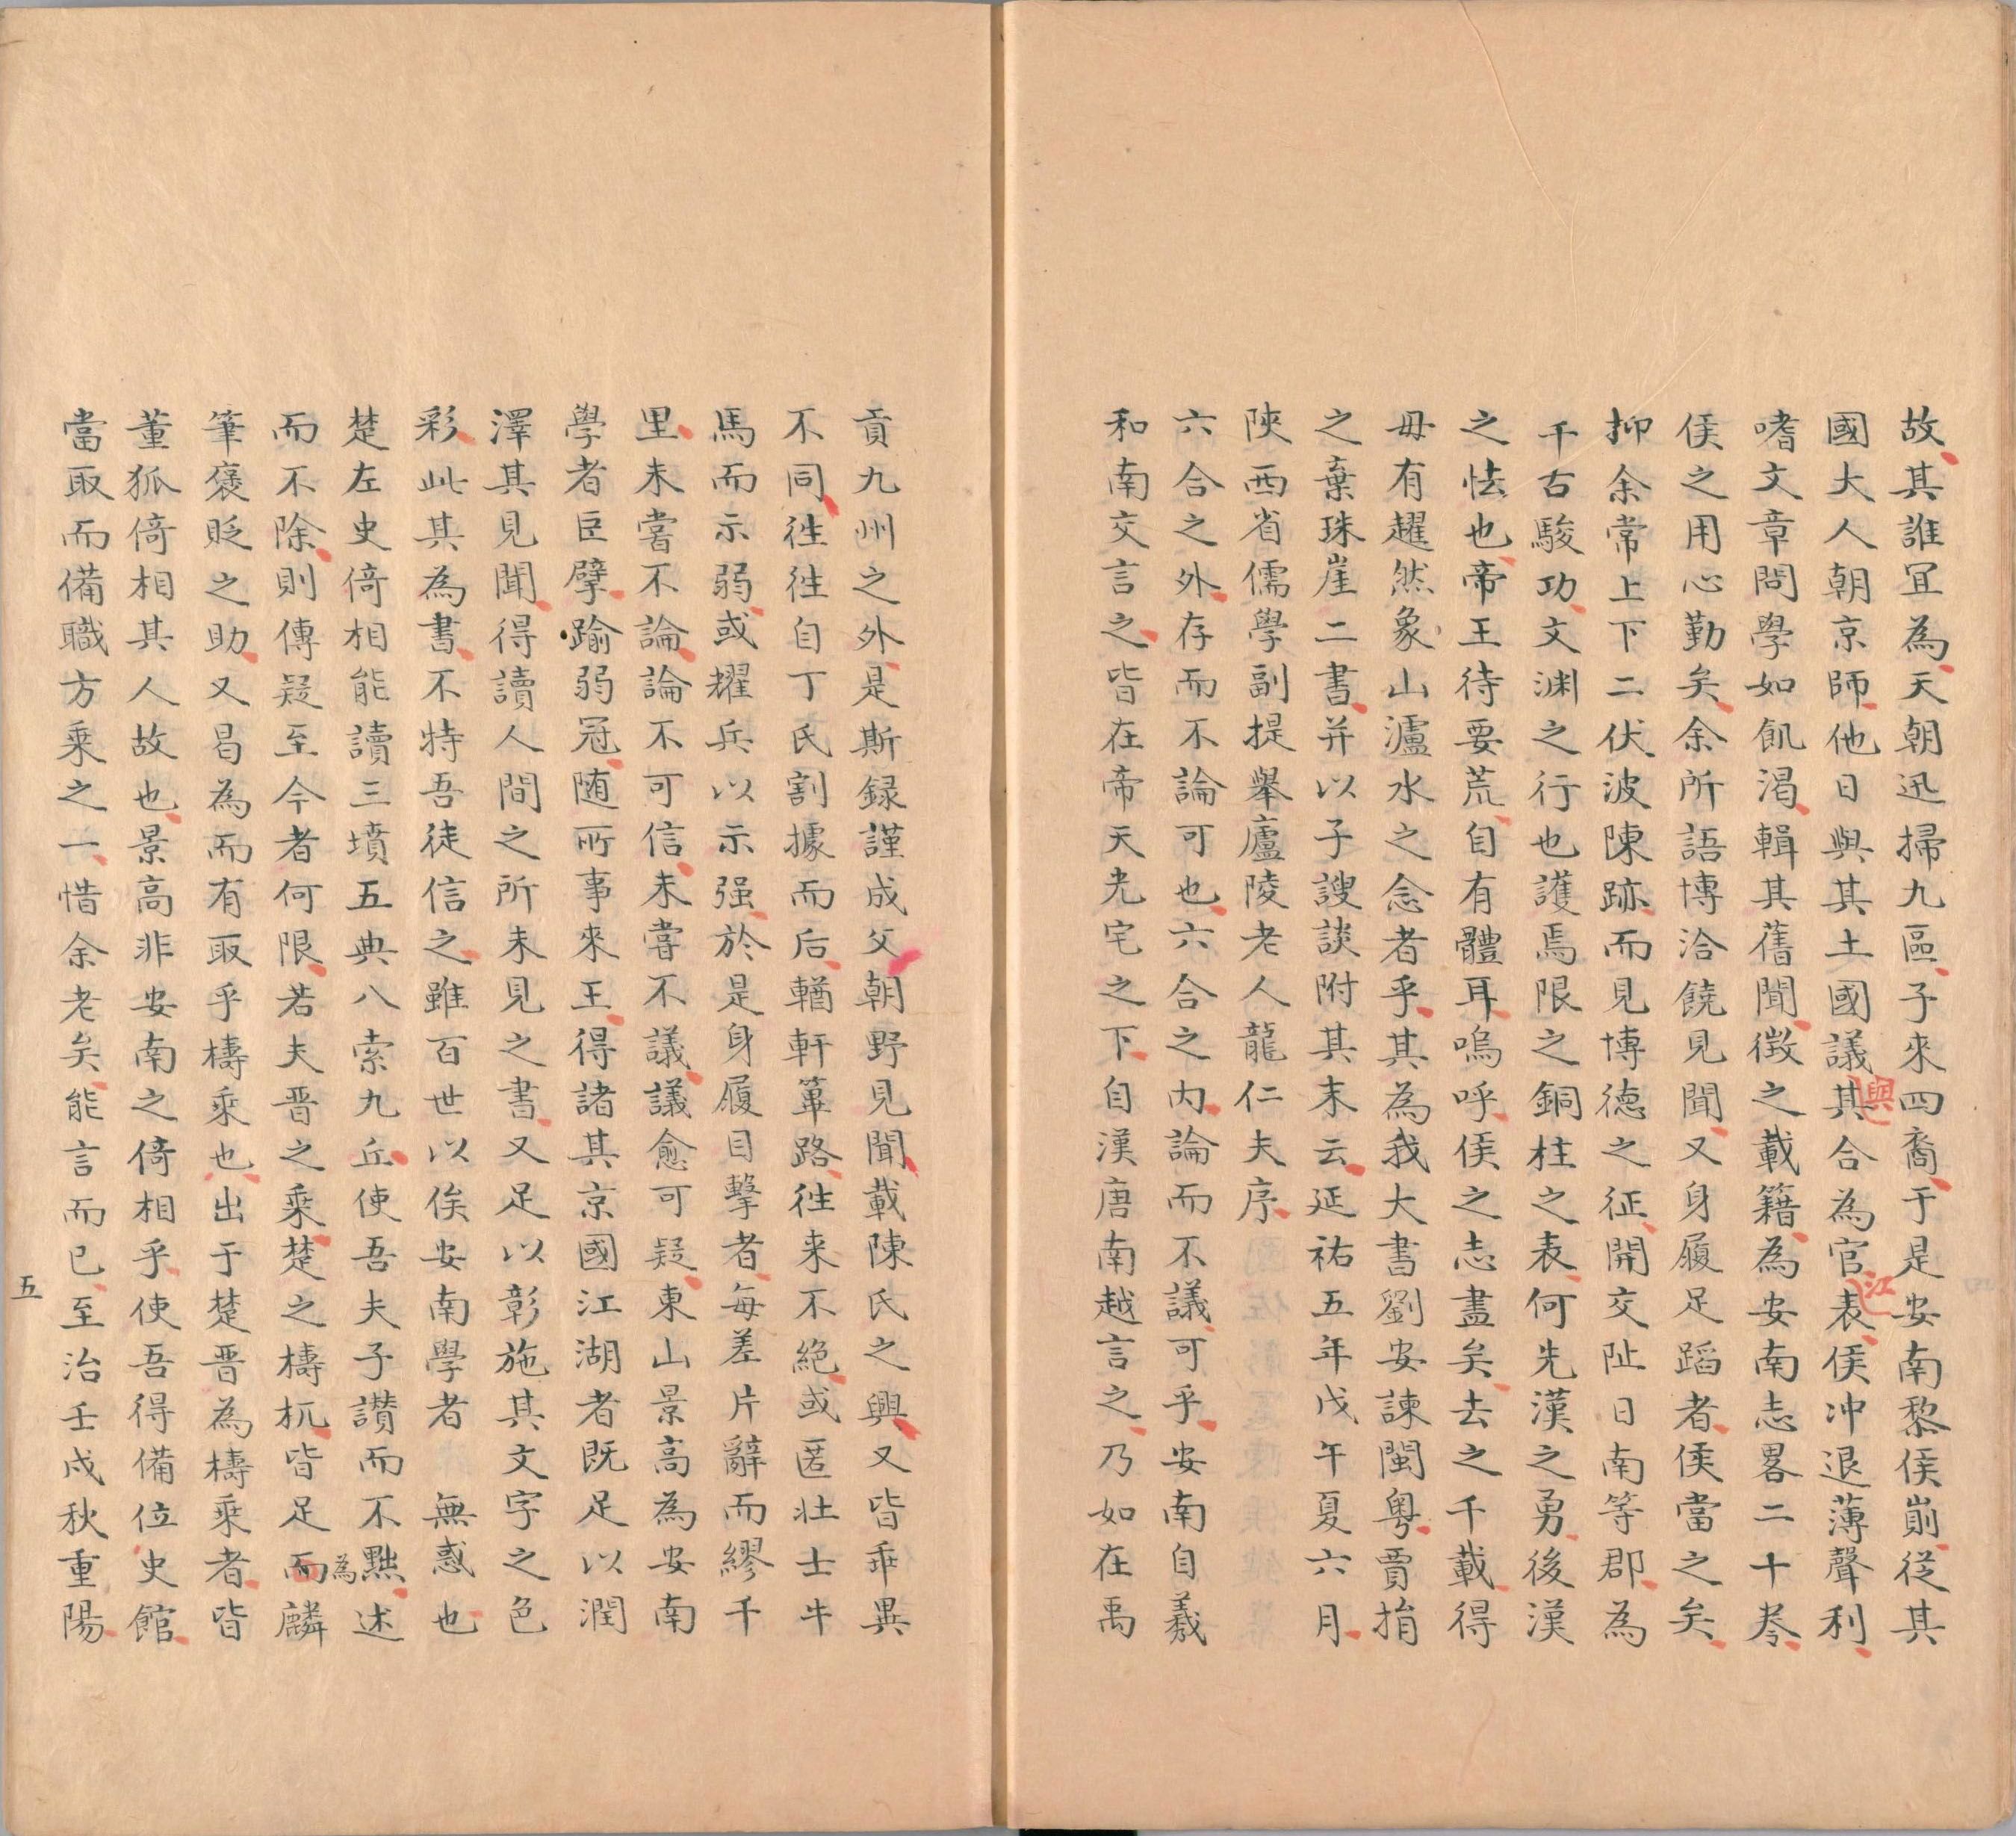 故其誰冝為天朝迅掃九區子來四裔于是安南黎侯崱從其
國大人朝京師他日與其土國議其合為官表侯冲退薄聲利
與
江
嗜文章問學如飢渴輯其舊聞徴之載籍為安南志畧二十卷
侯之用心勤矣余所語博洽饒見聞又身履足蹈者侯當之矣
抑余常上下二伏波陳跡而見博德之征開交阯日南等郡為
千古駿功文渊之行也護焉限之銅柱之表何先漢之勇後漢
之怯也帝王待要荒自有體耳嗚呼侯之志盡矣去之千載得
毋有趯然象山瀘水之念者乎其為我大書劉安諫閩粤賈捐
之棄珠崖二書并以子謏談附其末云延祐五年戊午夏六月
陜西省儒學副提舉廬陵老人龍仁夫序
六合之外存而不論可也六合之内論而不議可乎安南自羲
和南交言之皆在帝天光宅之下自漢唐南越言之乃如在禹
貢九州之外是斯録謹成父朝野見聞載陳氏之興又皆乖異
不同徃徃自丁氏割據而后輶軒篳路徃来不絶或匿壮士牛
馬而示弱或耀兵以示强於是身履目擊者每差片辭而繆千
里未嘗不論論不可信未嘗不議議愈可疑東山景高為安南
學者巨擘踰弱冠随所事來王得諸其京國江湖者既足以潤
澤其見聞得讀人間之所未見之書又足以彰施其文字之色
彩此其為書不特吾徒信之雖百世以俟安南學者 無惑也
楚左史倚相能讀三墳五典八索九丘使吾夫子讚而不黜述
為
而不除則傳疑至今者何限若夫晋之乘楚之檮杌皆足而麟
筆褒貶之助又曷為而有取乎檮乘也出于楚晋為檮乘者皆
董狐倚相其人故也景高非安南之倚相乎使吾得備位史館
當取而備職方乘之一惜余老矣能言而已至治壬戌秋重陽
五